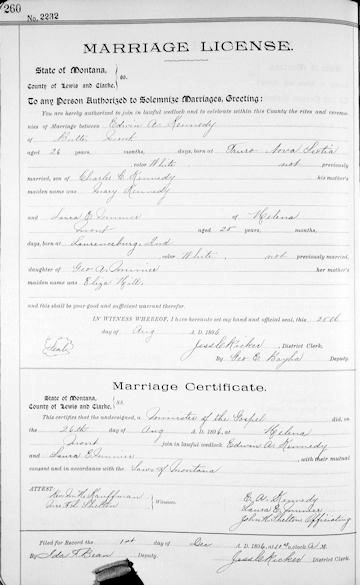 260
No. 2232
MARRIAGE LICENSE.
State of Montana,
County of Lewis and Clarke, ss.
To any Person Authorized to Solemnize Marriages, Greeting:
You are hereby authorized to join in lawful wedlock and to celebrate within this County the rites and ceremo-
nies of Marriage between Edwin A. Kennedy
of Butte
aged 26 years, months, days, born at Truro Nova Scotia
color White not previously
married, son of Charles E. Kennedy his mother's
maiden name was Mary Kennedy
and Laura E. of Helena
Mont aged 25 years, months,
days, born at Lawrenceburg Ind
color White, not previously married,
daughter of Geo. A. her mother's
maiden name was Eliza Hill
and this shall be your good and sufficient warrant therefor.
IN WITNESS WHEREOF, I have hereunto set my hand and official seal, this 25th
day of Aug A. D. 1896
(Seal) District Clerk.
By Geo. E. Deputy.
Marriage Certificate.
State of Montana,
County of Lewis and Clarke, ss.
This certifies that the undersigned, a Minister of the Gospel did, on
the 26th day of Aug A. D. 1896, at Helena
Mont join in lawful wedlock Edwin A. Kennedy
and Laura E. with their mutual
consent and in accordance with the Laws of Montana
ATTEST
Kauffman
Shelton Witness.
E. A. Kennedy
Laura E.
John H. Shelton Officiating
Filed for Record the 1st day of Dec A. D. 1896, at o'clock A. M.
By Ida F. Deputy. District Clerk.